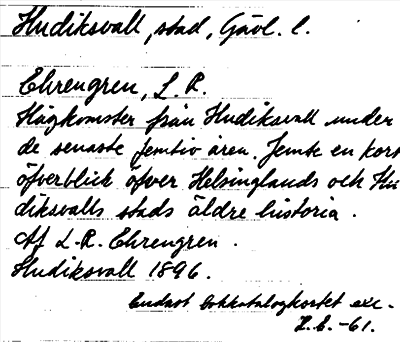 Hudiksvall, stad, Gävl. l.
Ehrengren, L. R.
Hågkomster från Hudiksvall under
de senaste femtio åren. Jemte en kort
öfverblick öfver Helsinglands och Hu
diksvalls stads äldre historia.
Af L. R. Ehrengren.
Hudiksvall 1896.
Endast bokkatalogkortet exc.
-61.